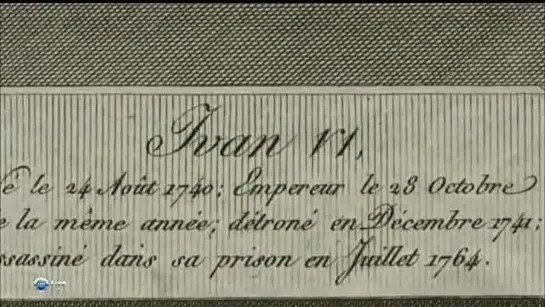 Ivan VI,
é le 24 Août 1740; Empereur le 28 Octobre
e la même année; détroné en Décembre 1741;
ssassiné dans sa prison en Juillet 1764.